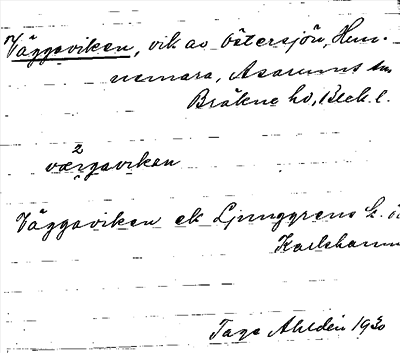 Väggaviken, vik av Östersjön, Hem-
nemara, Asarums sn
Bräkne hd, Blek. l.
2
væggaviken
Väggaviken ek Ljunggrens k. ö
Karlshamn
Tage Ahldén 1930